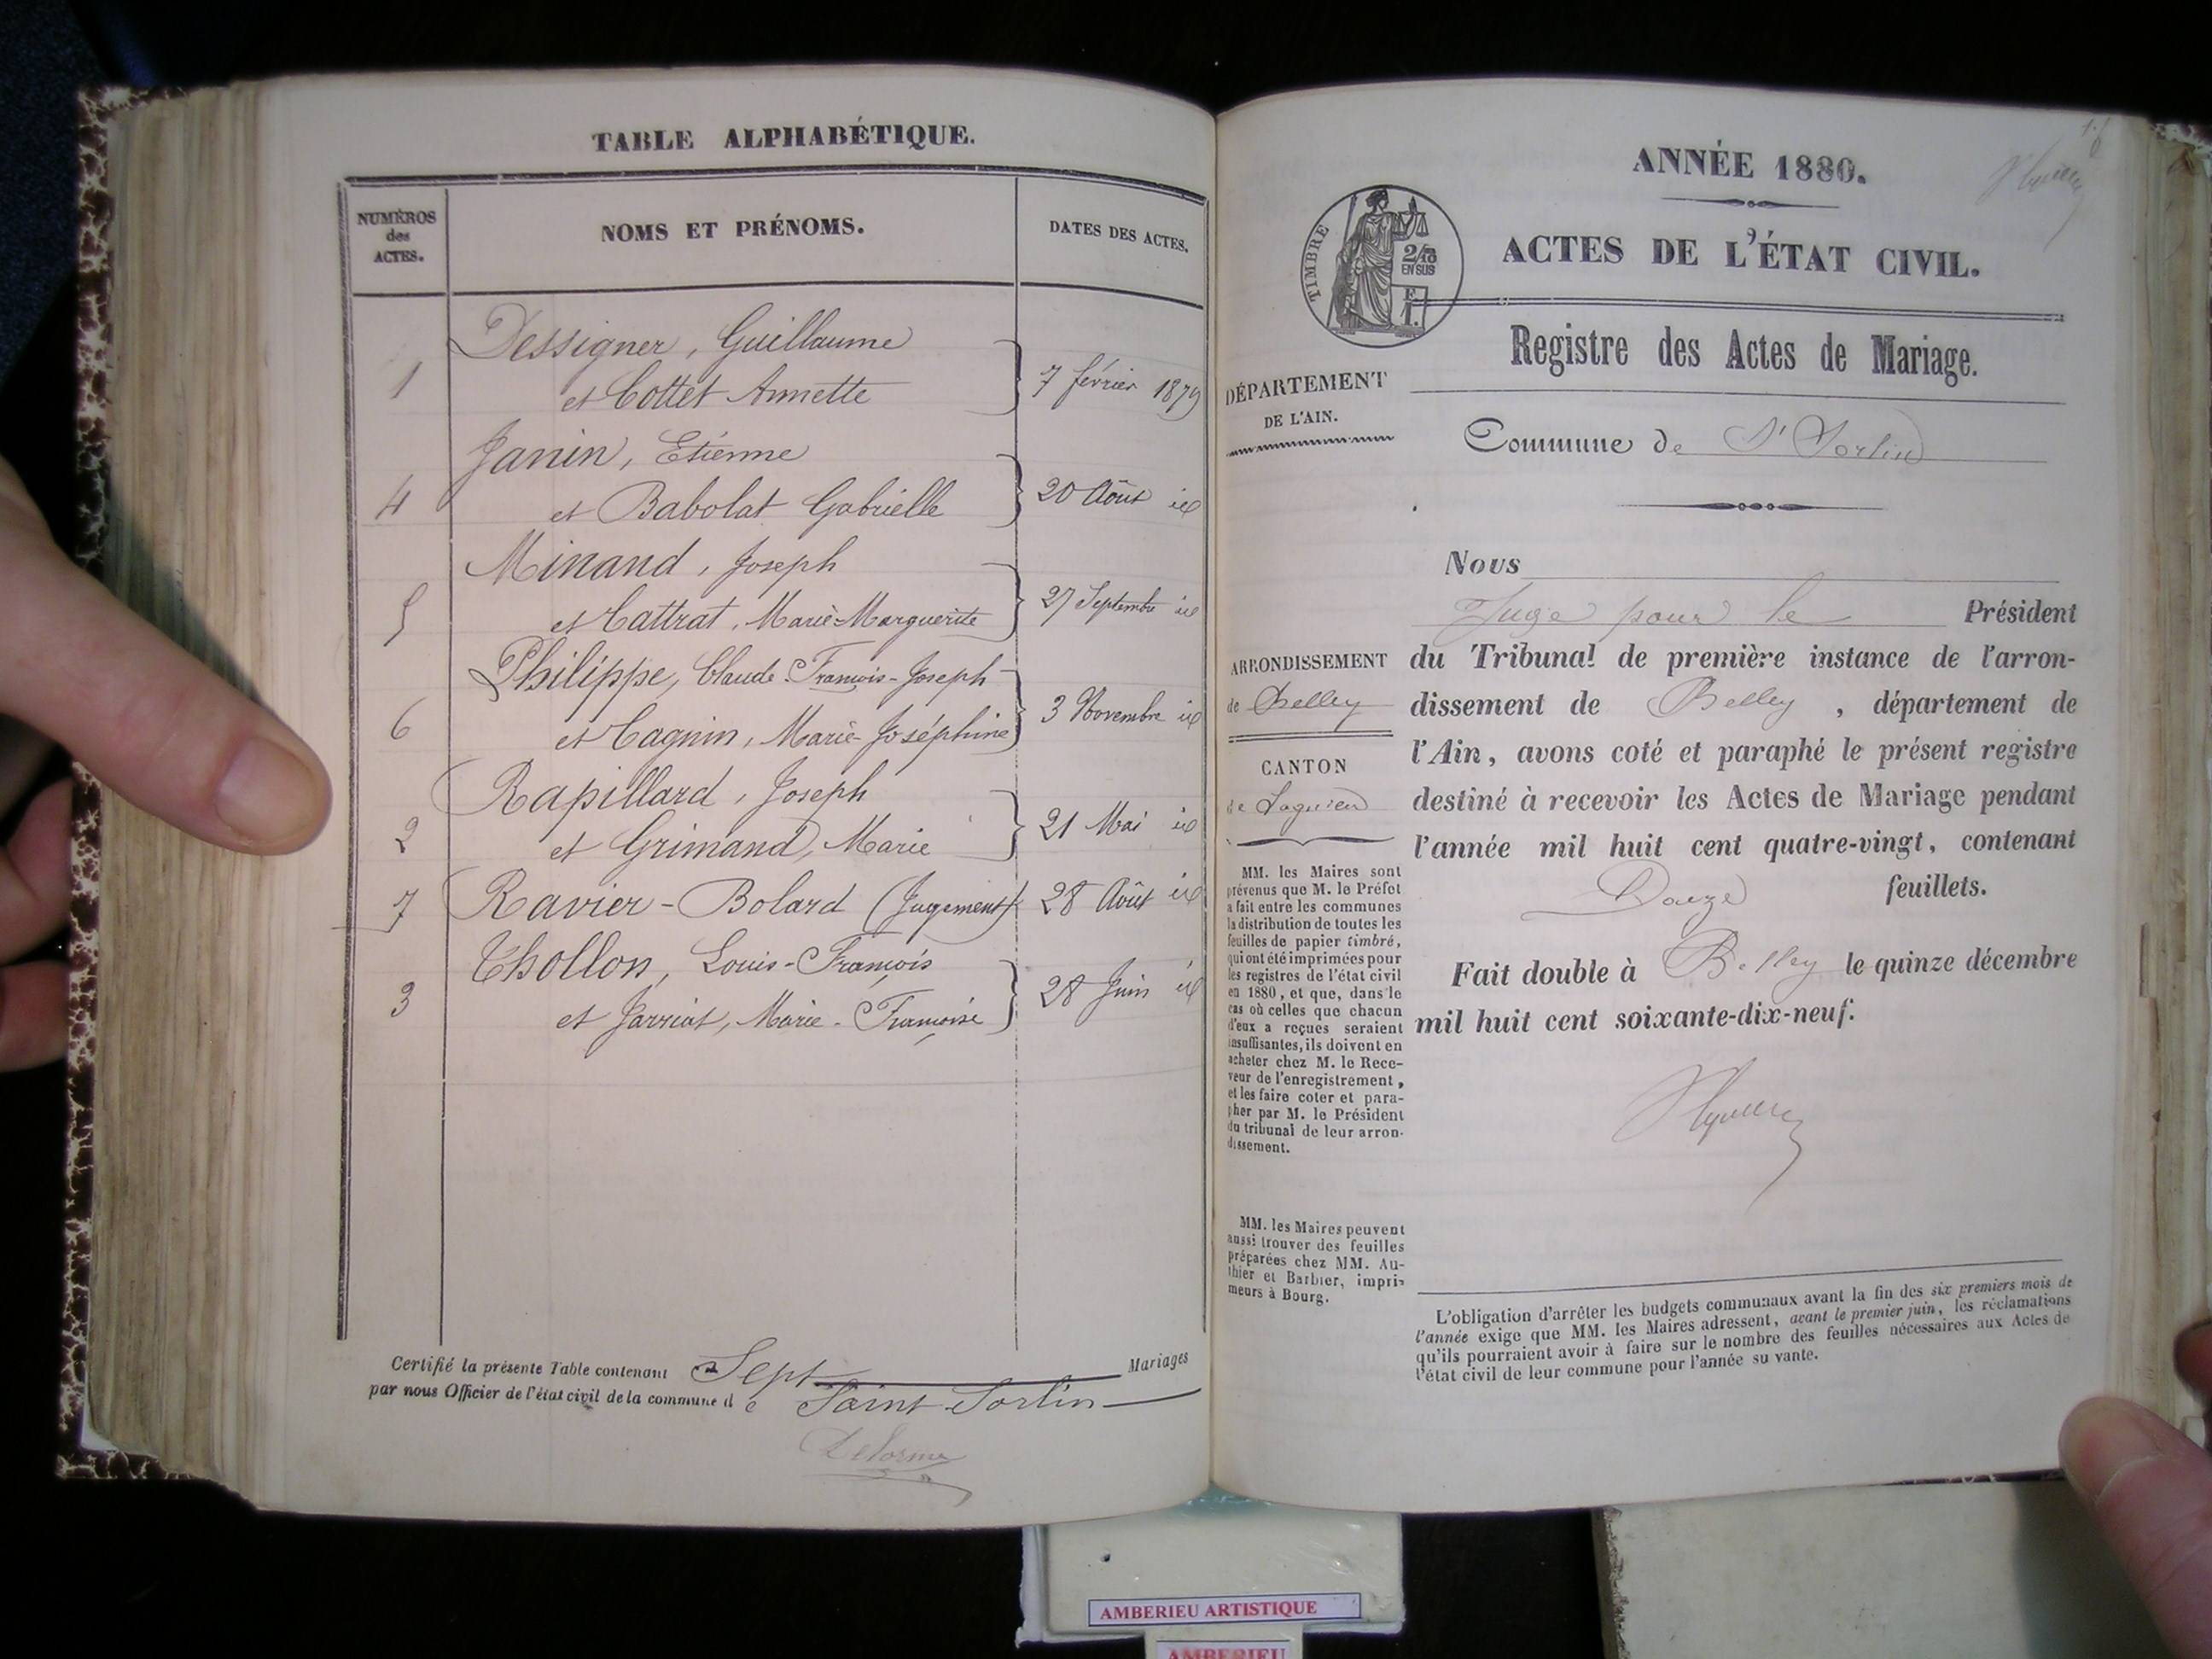 TABLE ALPHABÉTIQUE.
NUMÉROS
des
ACTES.
NOMS ET PRÉNOMS.
DATES DES ACTES.
Dessigner, Guillaume
1 et Cottet Annette 7 février 1879
Janin, Etienne
4 et Babolat Gabrielle 20 Août id
Minand, Joseph
5 et Cattrat, Marie-Marguerite 27 Septembre id
Philippe, Claude-François-Joseph
6 et Cagnin, Marie-Joséphine 3 Novembre id
Rapillard, Joseph
2 et Grimand, Marie 21 Mai id
7 Ravier-Bolard (Jugement) 28 Août id
Thollon, Louis-François
3 et Jarriat, Marie-Françoise 28 Juin id
Certifié la présente Table contenant Sept Mariages
par nous Officier de l'état civil de la commune de Saint Sorlin
Delorme
ANNÉE 1880.
ACTES DE L'ÉTAT CIVIL.
TIMBRE
2/10
EN SUS
F.
1.
Registre des Actes de Mariage.
DÉPARTEMENT
DE L'AIN.
Commune de St Sorlin
Nous
Juge pour le Président
du Tribunal de première instance de l'arron-
dissement de Belley, département de
l'Ain, avons coté et paraphé le présent registre
destiné à recevoir les Actes de Mariage pendant
l'année mil huit cent quatre-vingt, contenant
Douze feuillets.
Fait double à Belley le quinze décembre
mil huit cent soixante-dix-neuf.
ARRONDISSEMENT
de Belley
CANTON
de Lagnieu
MM. les Maires sont
prévenus que M. le Préfet
a fait entre les communes
la distribution de toutes les
feuilles de papier timbré,
qui ont été imprimées pour
les registres de l'état civil
en 1880, et que, dans le
cas où celles que chacun
d'eux a reçues seraient
insuffisantes, ils doivent en
acheter chez M. le Rece-
veur de l'enregistrement,
et les faire coter et para-
pher par M. le Président
du tribunal de leur arron-
dissement.
MM. les Maires peuvent
aussi trouver des feuilles
préparées chez MM. Au-
thier et Barbier, impri-
meurs à Bourg.
L'obligation d'arrêter les budgets communaux avant la fin des six premiers mois de
l'année exige que MM. les Maires adressent, avant le premier juin, les réclamations
qu'ils pourraient avoir à faire sur le nombre des feuilles nécessaires aux Actes de
l'état civil de leur commune pour l'année su vante.
AMBERIEU ARTISTIQUE
AMBERIEU